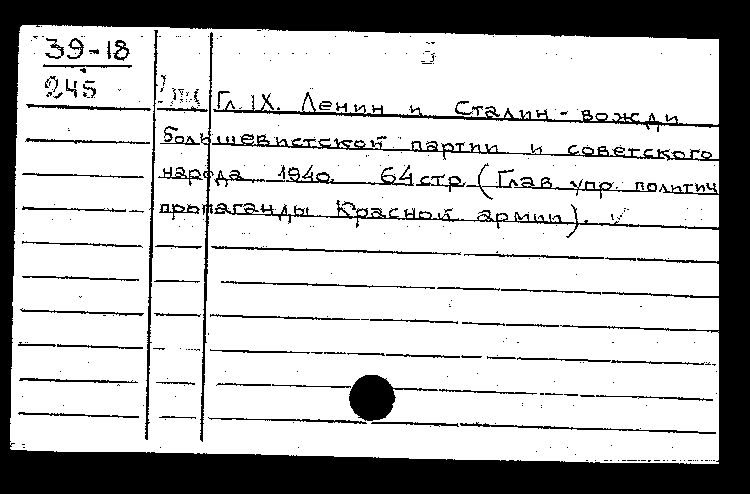 39-18
245
Гл. IX. Ленин и Сталин - вожди
большевистской партии и советского
народа 1940. 64 стр (Глав. упр. политич
пропаганды Красной армии). v